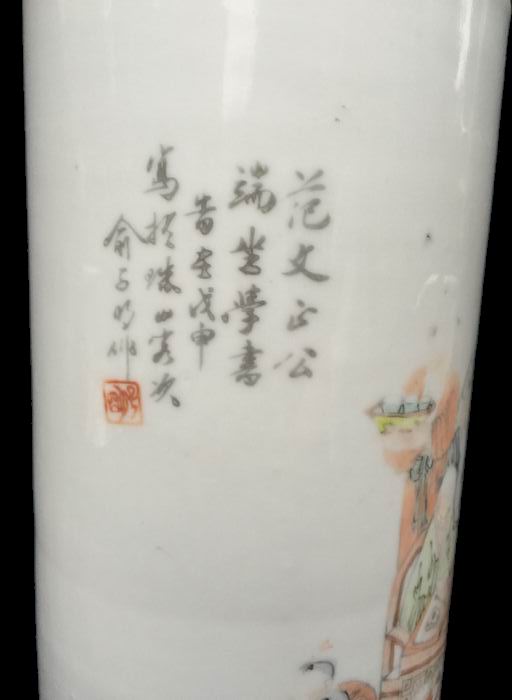 范文正公
端坐學書
旹在戊申
寫於珠山客次
俞子明作